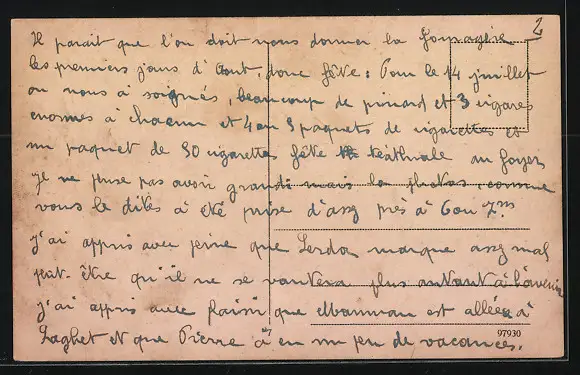 2
Il parait que l'on doit nous donner la fourragère
les premiers jours d'Aout, donc fête : Pour le 14 juillet
on nous à soignés, beaucoup de pinard et 3 cigares
enormes à chacun et 4 ou 5 paquets de cigarettes et
un paquet de 50 cigarettes fête téatrale au foyer
je ne pense pas avoir grandi mais la photo, comme
vous le dites à été prise d'assez près à 6 ou 7 m
j'ai appris avec peine que marque assez mal
peut être qu'il ne se vantera plus autant à l'avenir
j'ai appris avec plaisir que maman est allée à
Laghet et que Pierre à eu un peu de vacances.
97930